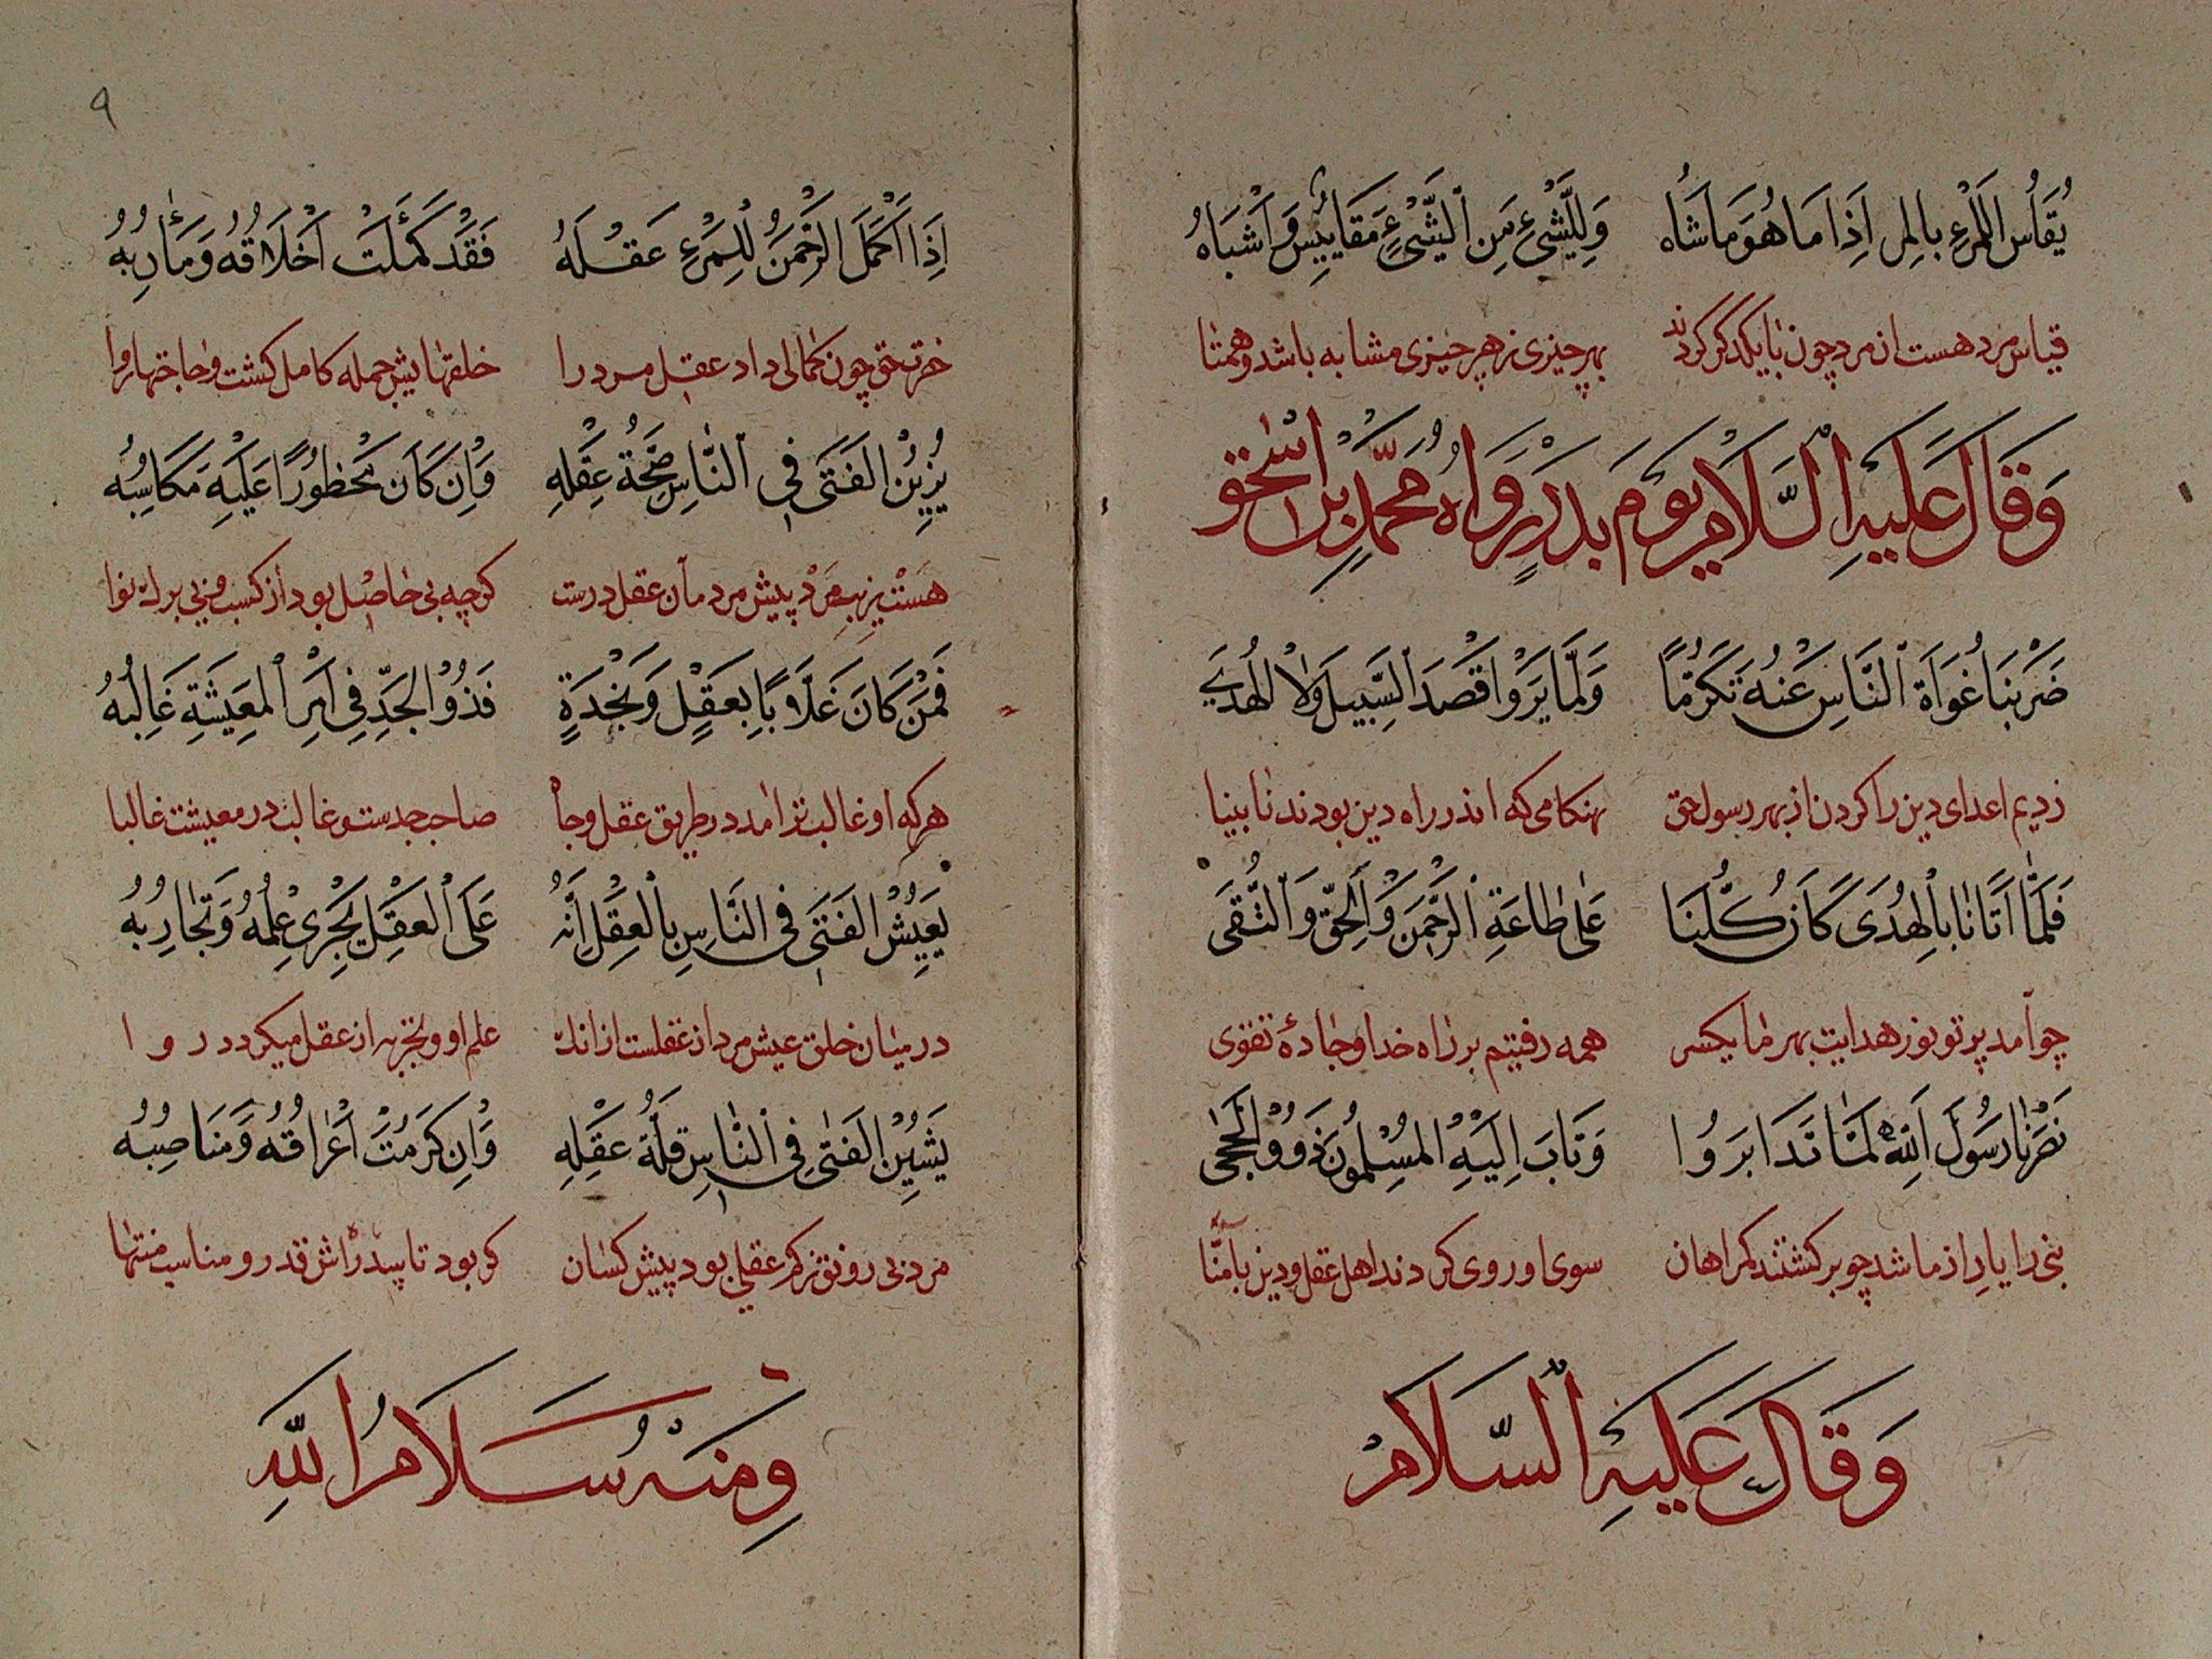 يُقَاسُ الْمَرْءُ بِالْمَرْءِ اِذَا مَا هُوَ مَاشَاهُ وَلِلشَّیْءِ مِنَ الشَّیْءِ مَقَايِيسُ وَاَشْبَاهُ
قیاس مرد هست از مرد چون با یکدگر کردند بهر چیزی ز هر چیزی مشابه باشد و همتا
وَقَالَ عَلَيْهِ السَّلَامُ يَوْمَ بَدْرٍ رَوَاهُ مُحَمَّدُ بْنُ اِسْحٰق
ضَرَبْنَا غُوَاةَ النَّاسِ عَنْهُ تَكَرُّمًا وَلَمَّا يَرَوْا قَصْدَ السَّبِيلِ وَلَا الْهُدَی
زدیم اعدای دین را کردن از بهر رسول حق بهنکامی که اندر راه دین بودند نابینا
فَلَمَّا اَتَانَا بِالْهُدَى كَانَ كُلُّنَا عَلٰى طَاعَةِ الرَّحْمٰنِ وَالْحَقِّ وَالتُّقَى
چو آمد پرتو نور هدایت بهر ما یکسر همه رفتیم بر راه خدا و جادهٔ تقوی
نَصَرْنَا رَسُولَ اللّٰهِ لَمَّا تَدَابَرُوا وَتَابَ اِلَيْهِ الْمُسْلِمُونَ ذَوُو الْحِجٰى
نبی را یار از ما شد چو برکشتند کمراهان سوی او روی کردند اهل عقل و دین بآمنّا
وَقَالَ عَلَيْهِ السَّلَامُ
٩
اِذَا اَكْمَلَ الرَّحْمٰنُ لِلْمَرْءِ عَقْلَهُ فَقَدْ كَمُلَتْ اَخْلَاقُهُ وَمَاٰرِبُهُ
حق چون کمالی داد عقل مرد را خلقهایش جمله کامل کشت و حاجتها روا
يَزِينُ الْفَتَى فِي النَّاسِ صِحَّةُ عَقْلِهِ وَاِنْ كَانَ مَحْظُورًا عَلَيْهِ مَكَاسِبُهُ
هست زیب مرد پیش مردمان عقل درست کرچه بی حاصل بود از کسب و بی برك نوا
فَمَنْ كَانَ غَلَّابًا بِعَقْلٍ وَنَجْدَةٍ فَذُو الْجَدِّ فِي اَمْرِ الْمَعِيشَةِ غَالِبُهُ
هر که او غالب تر آمد در طریق عقل و جاه صاحب جدست و غالب در معیشت غالبا
يَعِيشُ الْفَتَى فِي النَّاسِ بِالْعَقْلِ اِنَّهُ عَلَى الْعَقْلِ يَجْرِي عِلْمُهُ وَتَجَارِبُهُ
در میان خلق عیش مرد از عقلست از انك علم او و تجربه از عقل میکردد روا
يَشِينُ الْفَتٰى فِي النَّاسِ قِلَّةُ عَقْلِهِ وَاِنْ كَرُمَتْ اَعْرَاقُهُ وَمَنَاصِبُهُ
مرد بی رونق ز کم عقلی بود پیش کسان کر بود تا سدره اش قدر و مناسب منتها
وَمِنْهُ سَلَامُ اللّٰهِ